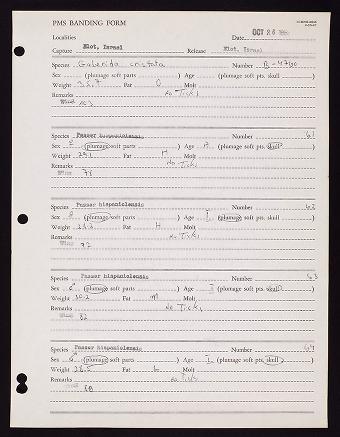 PMS BANDING FORM
Localities Date OCT 26
Capture Elot, Israel Release Elot, Israel
Species Galerida cristata Number B-4790
Sex (plumage soft parts) Age (plumage soft pts. skull)
Weight Fat 0 Molt
Remarks no Ticks
Wing 103
Species Passer hispaniolensis Number 61
Sex ♀ (plumage soft parts) Age A (plumage soft pts. skull)
Weight Fat M Molt
Remarks no Ticks
Wing 78
Species Passer hispaniolensis Number 62
Sex ♀ (plumage soft parts) Age I (plumage soft pts. skull)
Weight Fat M Molt
Remarks no Ticks
Wing 77
Species Passer hispaniolensis Number 63
Sex ♂ (plumage soft parts) Age I (plumage soft pts. skull)
Weight 30.2 Fat M Molt
Remarks no Ticks
Wing 82
Species Passer hispaniolensis Number 64
Sex ♂ (plumage soft parts) Age I (plumage soft pts. skull)
Weight Fat L Molt
Remarks no Ticks
Wing